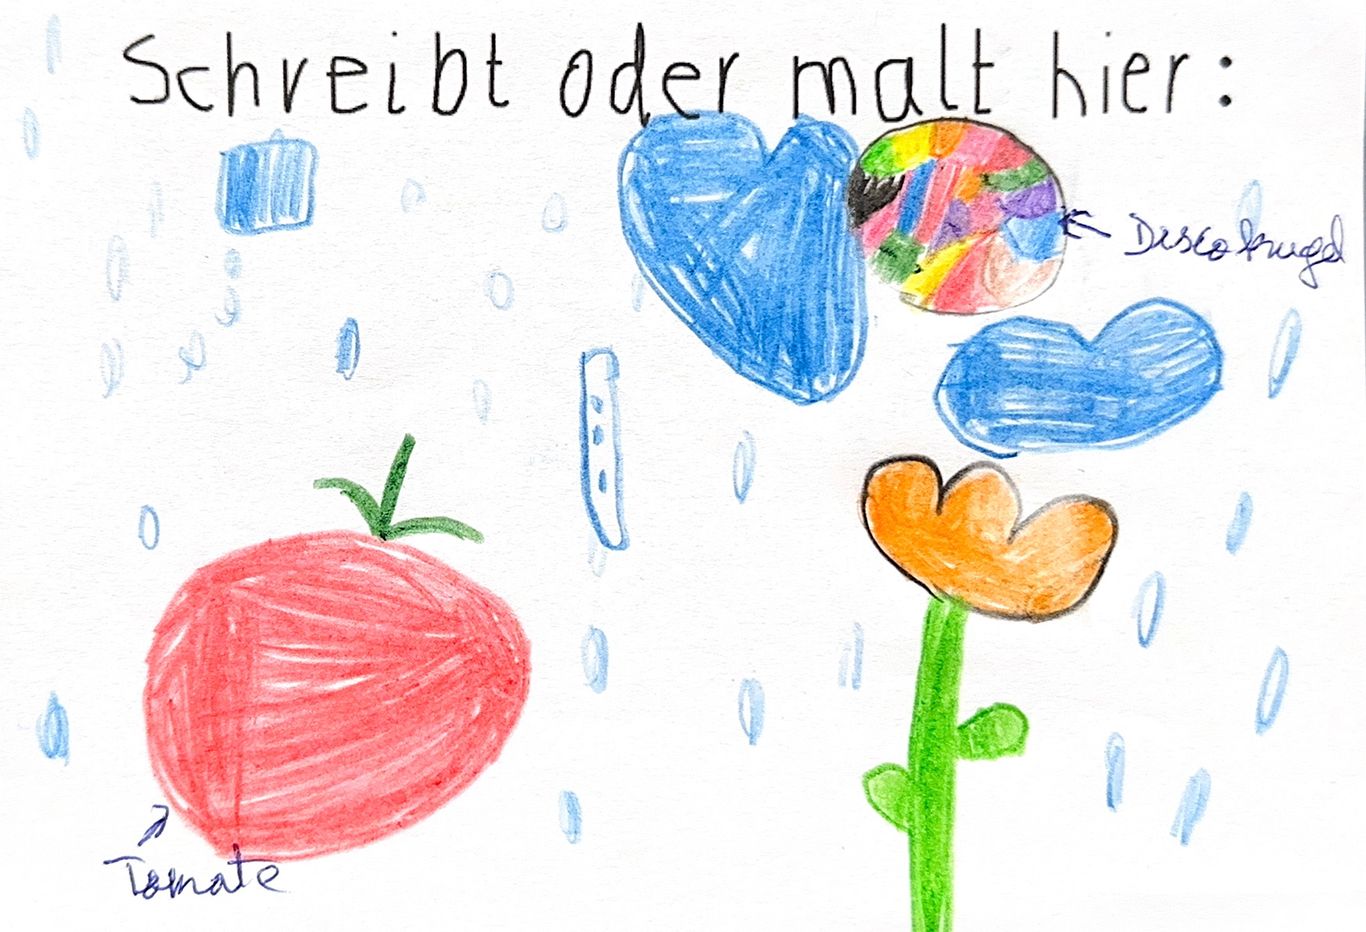 Schreibt oder malt hier:
Discokugel
Tomate